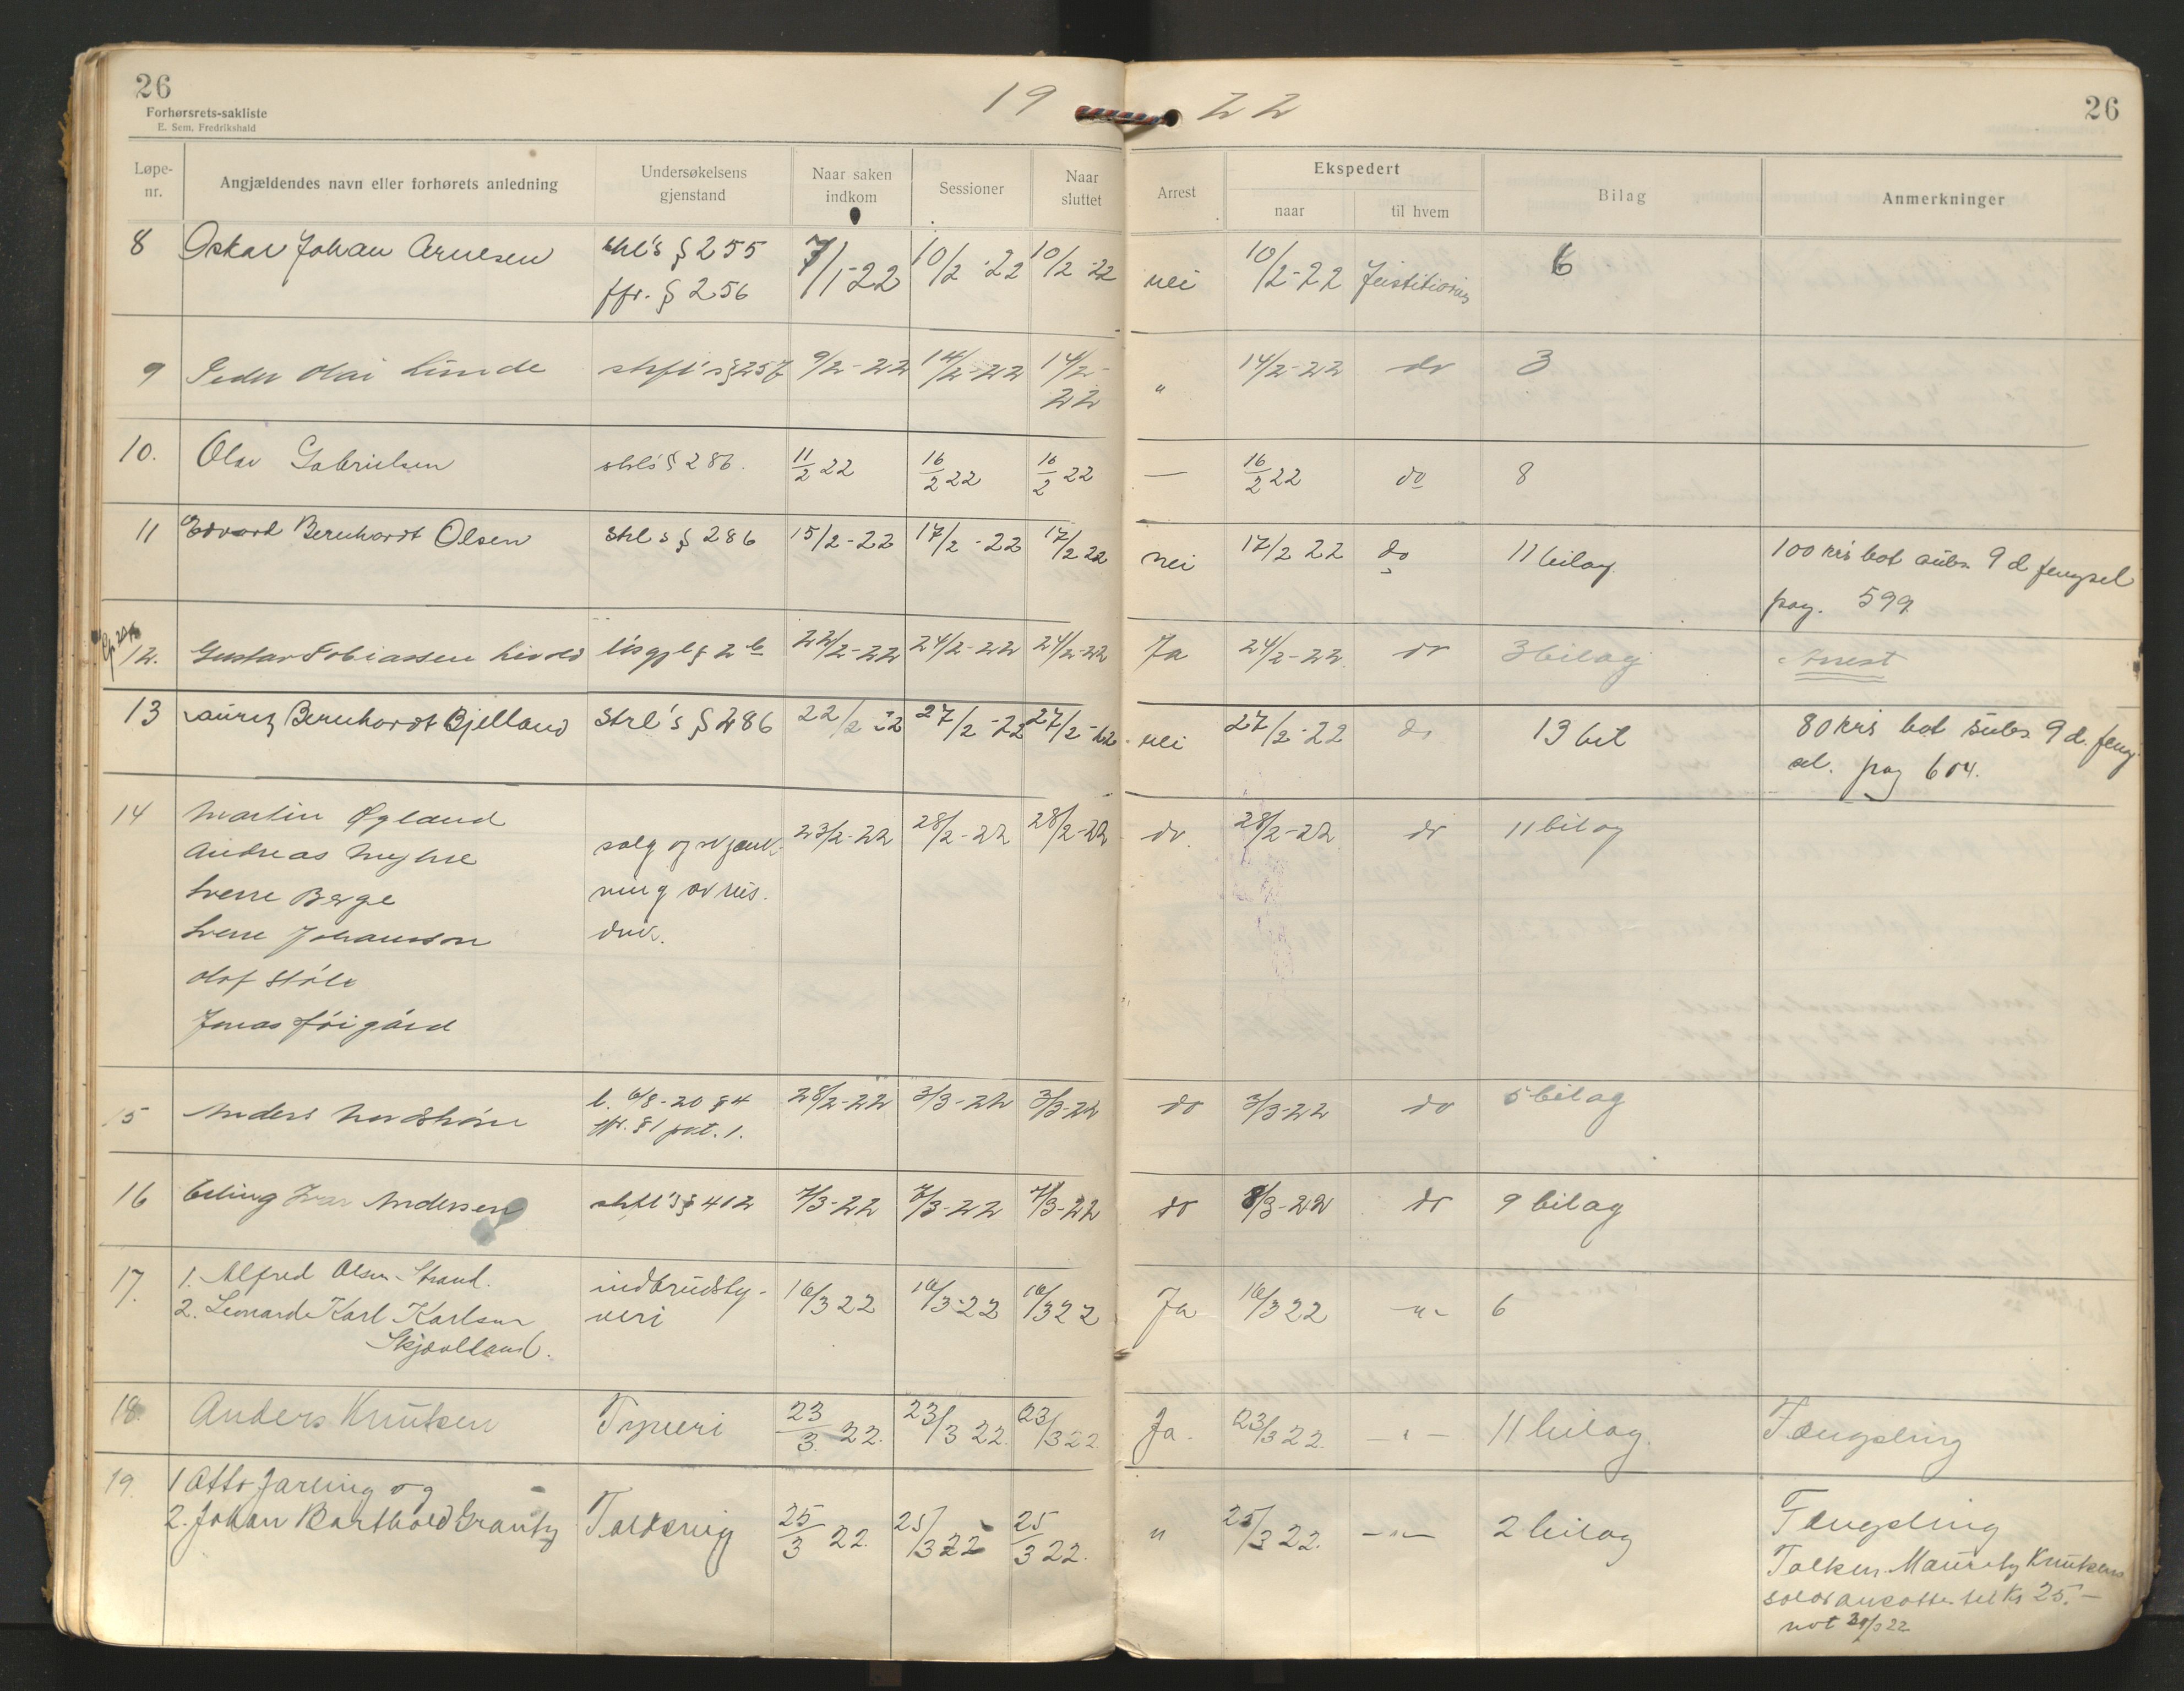 26
Forhørsrets-sakliste
E. Sem, Fredrikshald
19 22
26
Løpe-nr.
Angjældendes navn eller forhørets anledning
Undersøkelsens gjenstand
Naar saken indkom
Sessioner
Naar sluttet
Arrest
Ekspedert
naar
til hvem
Bilag
Anmerkninger
8 Oskar Johan Arnesen strl's § 255 7/1-22 10/2-22 10/2-22 nei 10/2-22 Justitiarius 6
jfr. § 256
9 Peder Olai Lunde strfl's § 257 9/2-22 14/2-22 14/2-22 " 14/2-22 do 3
10. Olav Gabrielsen strl's § 286. 11/2 22 16/2 22 16/2 22 — 16/2 22 do 8
11 Edvard Bernhardt Olsen Strl's § 286 15/2-22 17/2-22 17/2 22 nei 17/2 22 do 11 bilag. 100 krs bot subs. 9 d fengsel
pag. 599
12. Gustav Tobiassen løsgjl § 2 22/2-22 24/2-22 24/2-22 Ja 24/2-22 do 3 bilag Arrest
13 Lauritz Bernhardt Bjelland Strl's § 286 22/2-22 27/2-22 27/2-22 nei 27/2-22 do 13 bil 80 krs bot subs. 9 d. feng
sel. pag 604.
14 Martin Øgland 23/2-22 28/2-22 28/2-22 do. 28/2-22 do 11 bilag
Andreas Myhre salg og skjænk-
Sverre Berge ning av
Sverre Johansson
Olof Ståle
Jonas
15 Anders l. 6/8-20 § 4 28/2-22 3/3-22 3/3-22 do 3/3-22 do 5 bilag
jfr. § 1 pkt. 1.
16 Erling Ivar Andersen strfl's § 402 7/3-22 7/3-22 7/3-22 do 8/3-22 do 9 bilag
17. 1. Alfred Olsen Strand. indbrudsty-
2. Leonard Karl Karlsen veri 16/3 22 16/3-22 16/3 22 Ja 16/3 22 -"- 6
Skjævlland.
18. Anders Knutsen Tyveri 23/3. 22. 23/3 22. 23/3 22. Ja. 23/3 22. -"- 11 bilag. Fængsling
19. 1 Otto Jarling og
2. Johan Barthold Grantz Toldsvig 25/3 22. 25/3 22 25/3 22. " 25/3 22. -"- 2 bilag Fængsling
Tolken Mauritz Knutsens
salær ansattes til Kr 25.-